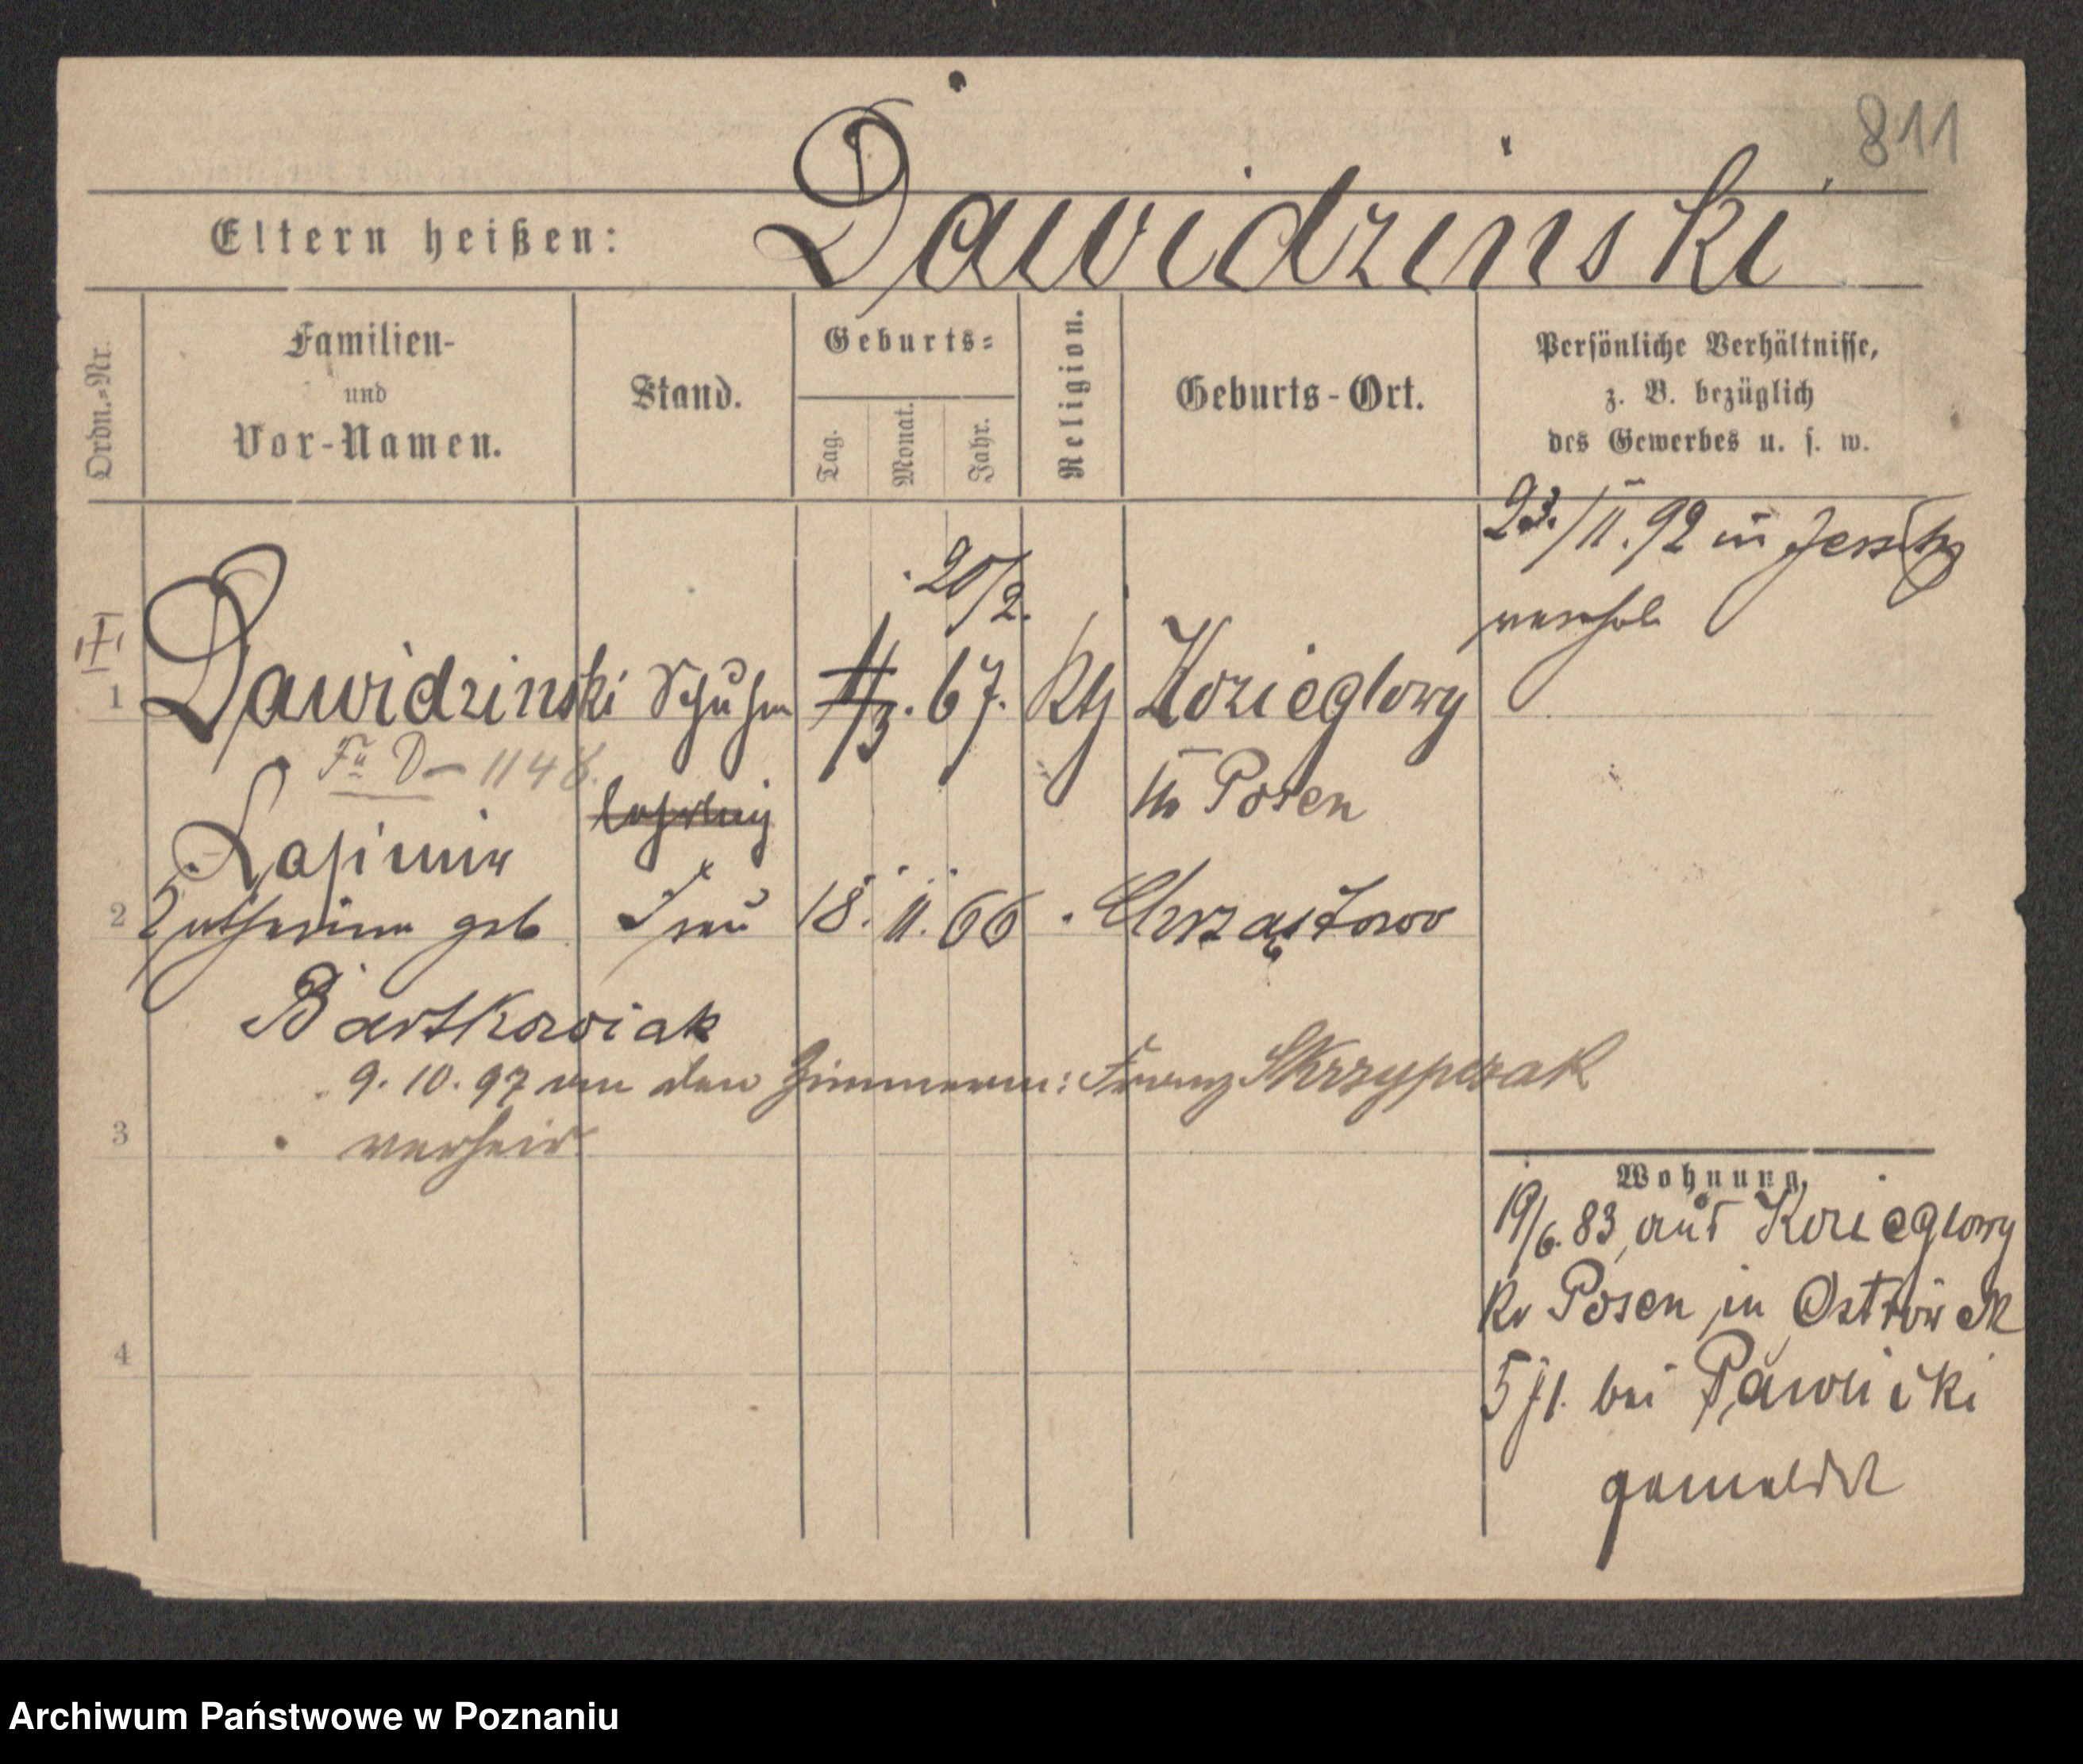 811
Eltern heißen: Dawidzinski
Ordn.=Nr.
Familien-
und
Vor-Namen.
Stand.
Geburts=
Tag.
Monat.
Jahr.
Religion.
Geburts-Ort.
Persönliche Verhältnisse,
z. B. bezüglich
des Gewerbes u. s. w.
23./11.92 in Jersitz
20/2.
1 Dawidzinski Schuhm 11/3. 67. Kth Kozieglowy
Fr D - 1148.
Posen
Kasimir
2 Katharina geb Frau 18. 11. 66 Chrząstowo
Bartkowiak
9.10.97 an den Zimmerm: Franz Skrzypczak
3 verheir.
Wohnung.
19/6.83 aus Kozieglowy
Kr Posen in Ostrówek
5 bei Pawlicki
4
gemeldet
Archiwum Państwowe w Poznaniu